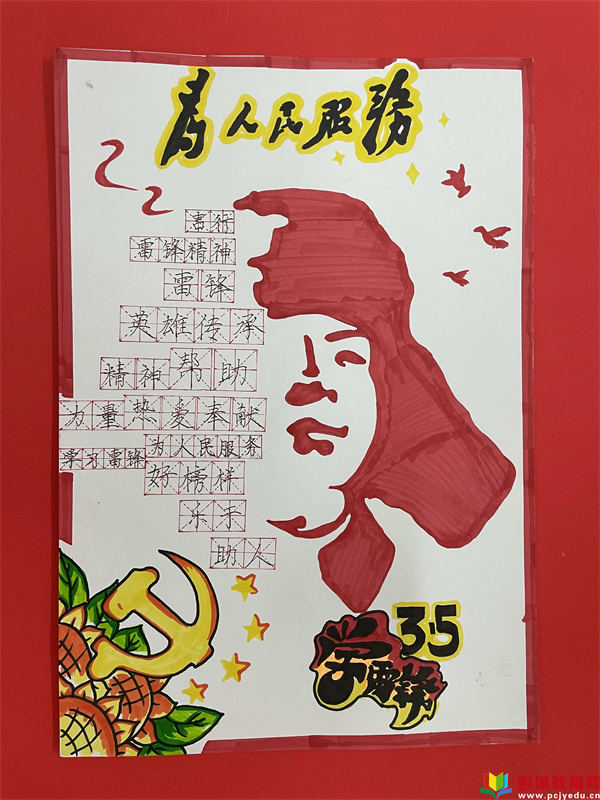 为人民服務
善行
雷锋精神
雷锋
英雄传承
精神帮助
力量热爱奉献
学习雷锋为人民服务
好榜样
乐于
助人
3·5
学雷锋
彭城教育网
www.pcjyedu.cn